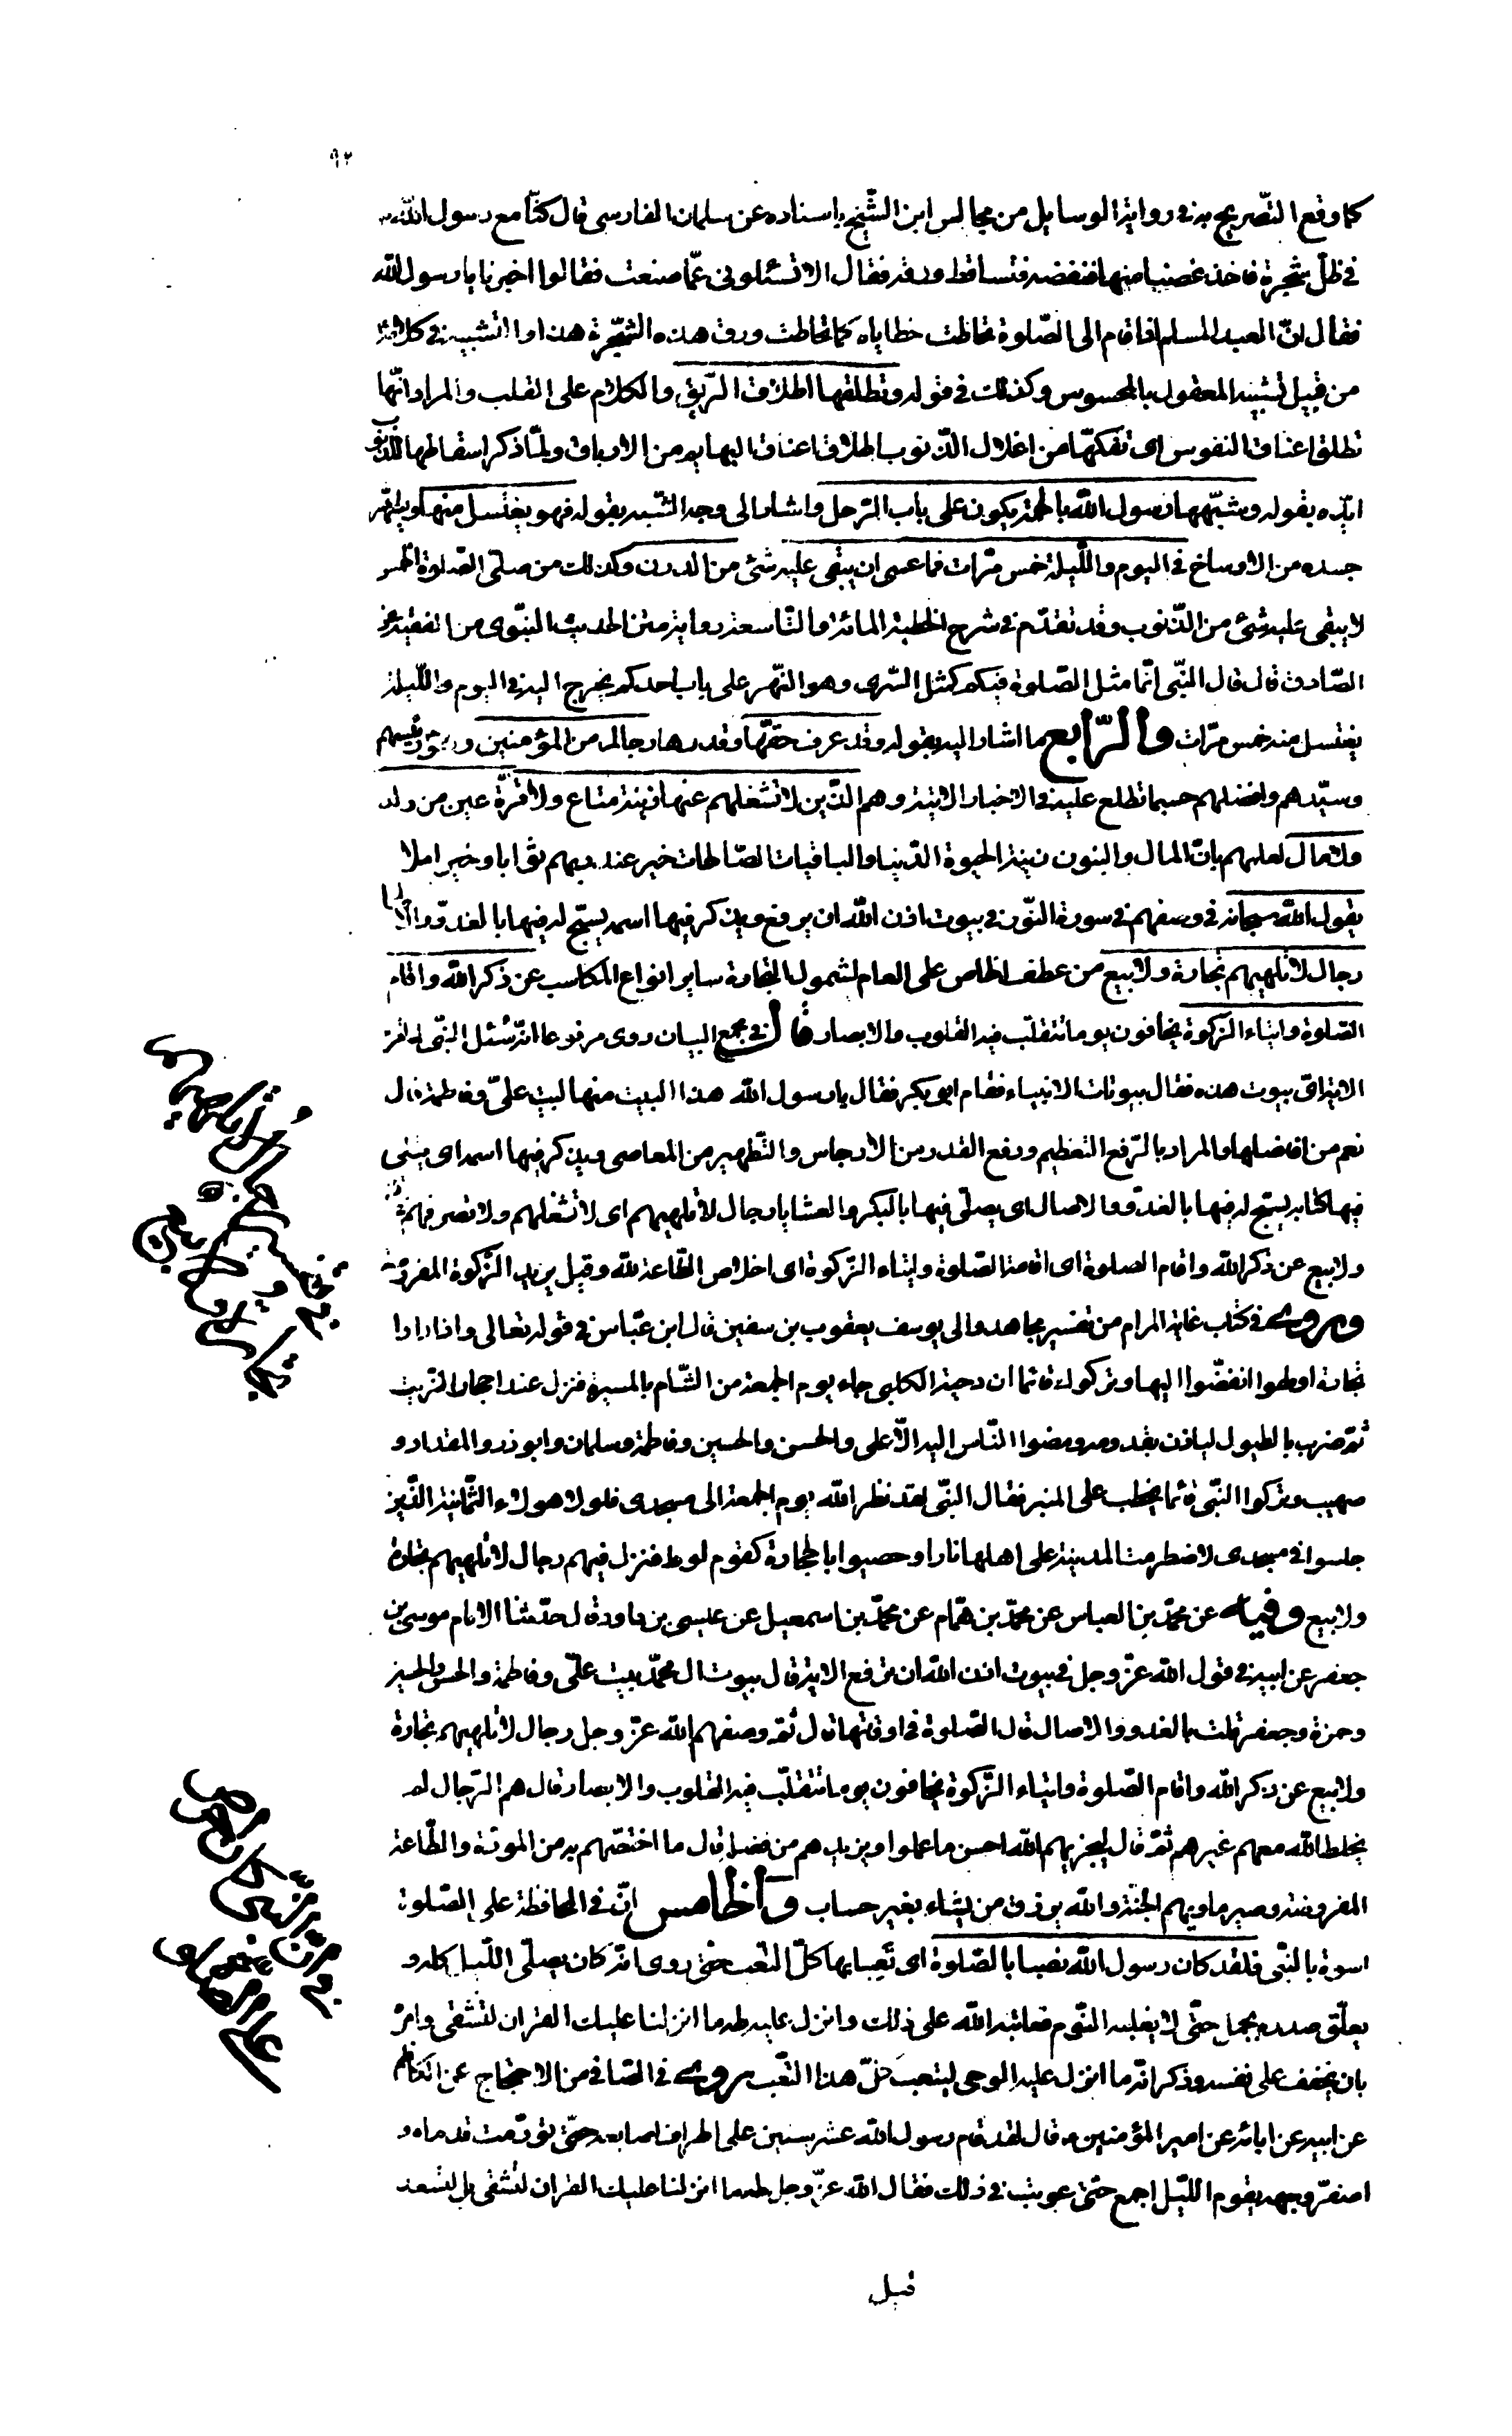 ٩٢
كما وقع التّصريح به في رواية الوسايل من مجالس ابن الشّيخ باسناده عن سلمان الفارسى قال كنّا مع رسول اللّه
في ظلّ شجرة فاخذ غصنا منها فنفضه فتساقط ورقه فقال الا تسئلونى عمّا صنعت فقالوا اخبرنا يا رسول اللّه
فقال انّ العبد المسلم اذا قام الى الصّلوة تحاطت خطاياه كما تحاطت ورق هذه الشّجرة هذا و التشبيه في كلامه
من قبيل تشبيه المعقول بالمحسوس وكذلك في قوله وتطلقها اطلاق الرّبق والكلام على القلب والمراد انّها
تطلق اعناق النفوس اى تفكّها من اغلال الذّنوب اطلاق اعناق البهايم من الارباق ولمّا ذكر اسقاطها للذنوب
ايّده بقوله وشبّهها رسول اللّه بالحمّة يكون على باب الرّجل واشار الى وجه الشّبه بقوله فهو يغتسل منها ويطهّر
جسده من الاوساخ في اليوم واللّيلة خمس مرّات فما عسى ان يبقى عليه شئ من الدرن وكذلك من صلّى الصّلوة الخمس
لا يبقى عليه شئ من الذّنوب وقد تقدّم في شرح الخطبة المائة والتّاسعة رواية متن الحديث النبّوى من الفقيه عن
الصّادق قال قال النبّى انّما مثل الصّلوة فيكم كمثل السّرى وهو النّهر على باب احدكم يخرج اليه في اليوم واللّيلة
يغتسل منه خمس مرّات والرّابع ما اشار اليه بقوله وقد عرف حقّها وقدرها رجال من المؤمنين ورئيسهم
وسيّدهم وافضلهم حسبما تطلع عليه في الاخبار الاتية وهم الذّين لا تشغلهم عنها زينة متاع ولا قرّة عين من ولد
ولا مال لعلمهم بانّ المال والبنون زينة الحيوة الدّنيا والباقيات الصّالحات خير عند ربهم ثوابا وخير املا
يقول اللّه سبحانه في وصفهم في سورة النّور في بيوت اذن اللّه ان يرفع ويذكر فيها اسمه يسبّح له فيها بالغدوّ والآصال
رجال لا تلهيهم تجارة ولا بيع من عطف الخاص على العام لشمول التجارة ساير انواع المكاسب عن ذكر اللّه واقام
الصّلوة وايتاء الزّكوة يخافون يوما تتقلّب فيه القلوب والابصار قال في مجمع البيان روى مرفوعا انّه سئل النبّى لما قرء
الاية اىّ بيوت هذه فقال بيوتات الانبياء فقام ابو بكر فقال يا رسول اللّه هذا البيت منها لبيت علىّ وفاطمة قال
نعم من افاضلها والمراد بالرّفع التعظيم ورفع القدر من الارجاس والتّطهير من المعاصى ويذكر فيها اسمه اى يتلى
فيها كتابه يسبّح له فيها بالغدوّ والاصال اى يصلّى فيها بالبكر والعشايا رجال لا تلهيهم اى لا تشغلهم ولا تصرفهم
ولا بيع عن ذكر اللّه واقام الصلوة اى اقامة الصّلوة وايتاء الزّكوة اى اخلاص الطّاعة للّه وقيل يريد الزّكوة المفروضة
وروى في كتاب غاية المرام من تفسير مجاهد وابى يوسف يعقوب بن سفين قال ابن عبّاس في قوله تعالى واذا رادا
تجارة او لهوا انفضّوا اليها وتركوك قائما ان دحية الكلبى جاء يوم الجمعة من الشّام بالميرة فنزل عند احجار الزّيت
ثمّ ضرب بالطبول ليأذن بقدومه ومضوا النّاس اليه الّا على والحسن والحسين وفاطمة وسلمان وابو ذر والمقداد و
صهيب وتركوا النبّى قائما يخطب على المنبر فقال النبّى لقد نظر اللّه يوم الجمعة الى مسجدى فلولا هولاء الثّمانية الذّين
جلسوا في مسجدى لاضطرمت المدينة على اهلها نارا وحصبوا بالحجارة كقوم لوط فنزل فيهم رجال لا تلهيهم تجارة
ولا بيع وفيه عن محمّد بن العباس عن محمّد بن همّام عن محمّد بن اسمعيل عن عيسى بن داود قال حدّثنا الامام موسى بن
جعفر عن ابيه في قول اللّه عزّ وجل في بيوت اذن اللّه ان ترفع الاية قال بيوت ال محمّد بيت علىّ وفاطمة والحسن والحسين
وحمزة وجعفر قلت بالغدو والاصال قال الصّلوة في اوقاتها قال ثمّ وصفهم اللّه عزّ وجل رجال لا تلهيهم تجارة
ولا بيع عن ذكر اللّه واقام الصّلوة وايتاء الزّكوة يخافون يوما تتقلّب فيه القلوب والابصار قال هم الرّجال لم
يخلط اللّه معهم غيرهم ثمّ قال ليجزيهم اللّه احسن ما عملوا ويزيدهم من فضله قال ما اختصّهم به من المودّة والطّاعة
المفروضة وصير ماويهم الجنّة واللّه يرزق من يشاء بغير حساب والخامس انّ في المحافظة على الصّلوة
اسوة بالنبّى فلقد كان رسول اللّه نصبا بالصّلوة اى تَعِبا بها كلّ التعب حتّى روى انّه كان يصلّى اللّيل كله و
يعلّق صدره بحبل حتّى لا يغلبه النّوم فعاتبه اللّه على ذلك وانزل عليه طه ما انزلنا عليك القران لتشقى وامره
بان يخفف على نفسه وذكر انّه ما انزل عليه الوحى ليتعب كلّ هذا التّعب روى في الصّافى من الاحتجاج عن الكاظم
عن ابيه عن ابائه عن امير المؤمنين قال لقد قام رسول اللّه عشر سنين على اطراف اصابعه حتّى تورّمت قدماه و
اصفرّ وجهه يقوم اللّيل اجمع حتّى عوتب في ذلك فقال اللّه عزّ وجل طه ما انزلنا عليك القران لتشقى بل لتسعد
قيل